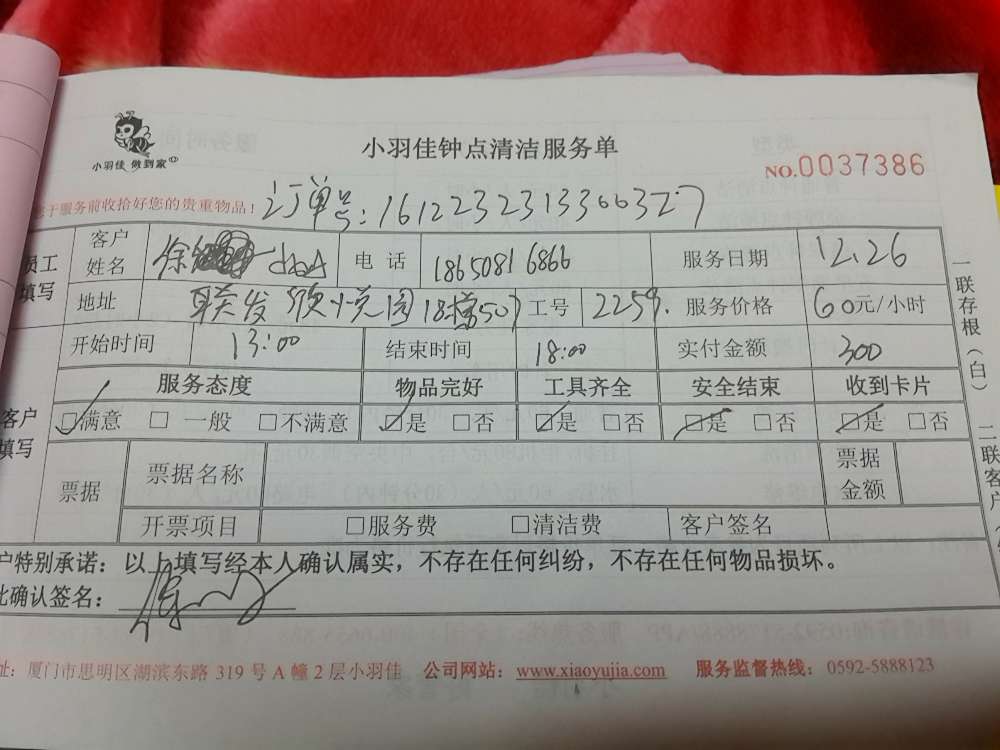 小羽佳 做到家
小羽佳钟点清洁服务单
NO.0037386
于服务前收拾好您的贵重物品！
订单号：161223231330032
员工填写
客户姓名 徐 电话 18650816866 服务日期 12.26
地址 联发欣悦园18栋507 工号 2259. 服务价格 60元/小时
开始时间 13:00 结束时间 18:00 实付金额 300
客户填写
服务态度 物品完好 工具齐全 安全结束 收到卡片
☑满意 □一般 □不满意 ☑是 □否 ☑是 □否 ☑是 □否 ☑是 □否
票据 票据名称 票据金额
开票项目 □服务费 □清洁费 客户签名
户特别承诺：以上填写经本人确认属实，不存在任何纠纷，不存在任何物品损坏。
此确认签名：
址：厦门市思明区湖滨东路 319 号 A 幢 2 层小羽佳 公司网站：www.xiaoyujia.com 服务监督热线：0592-5888123
一联存根（白）二联客户